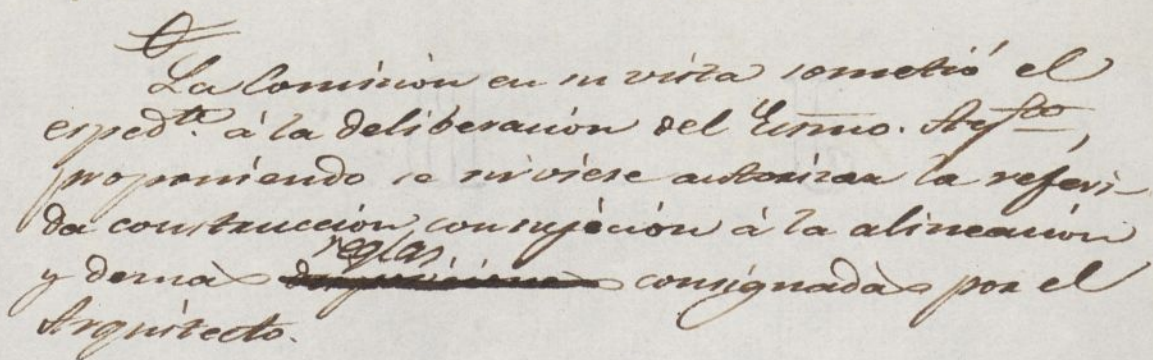 La Comision en su vista sometió el
exped.te á la deliberación del Exmo. Ayto,
proponiendo se sirviese autorizar la referi-
da construcción con sujeción á la alineación
y demas reglas consignadas por el
Arquitecto.